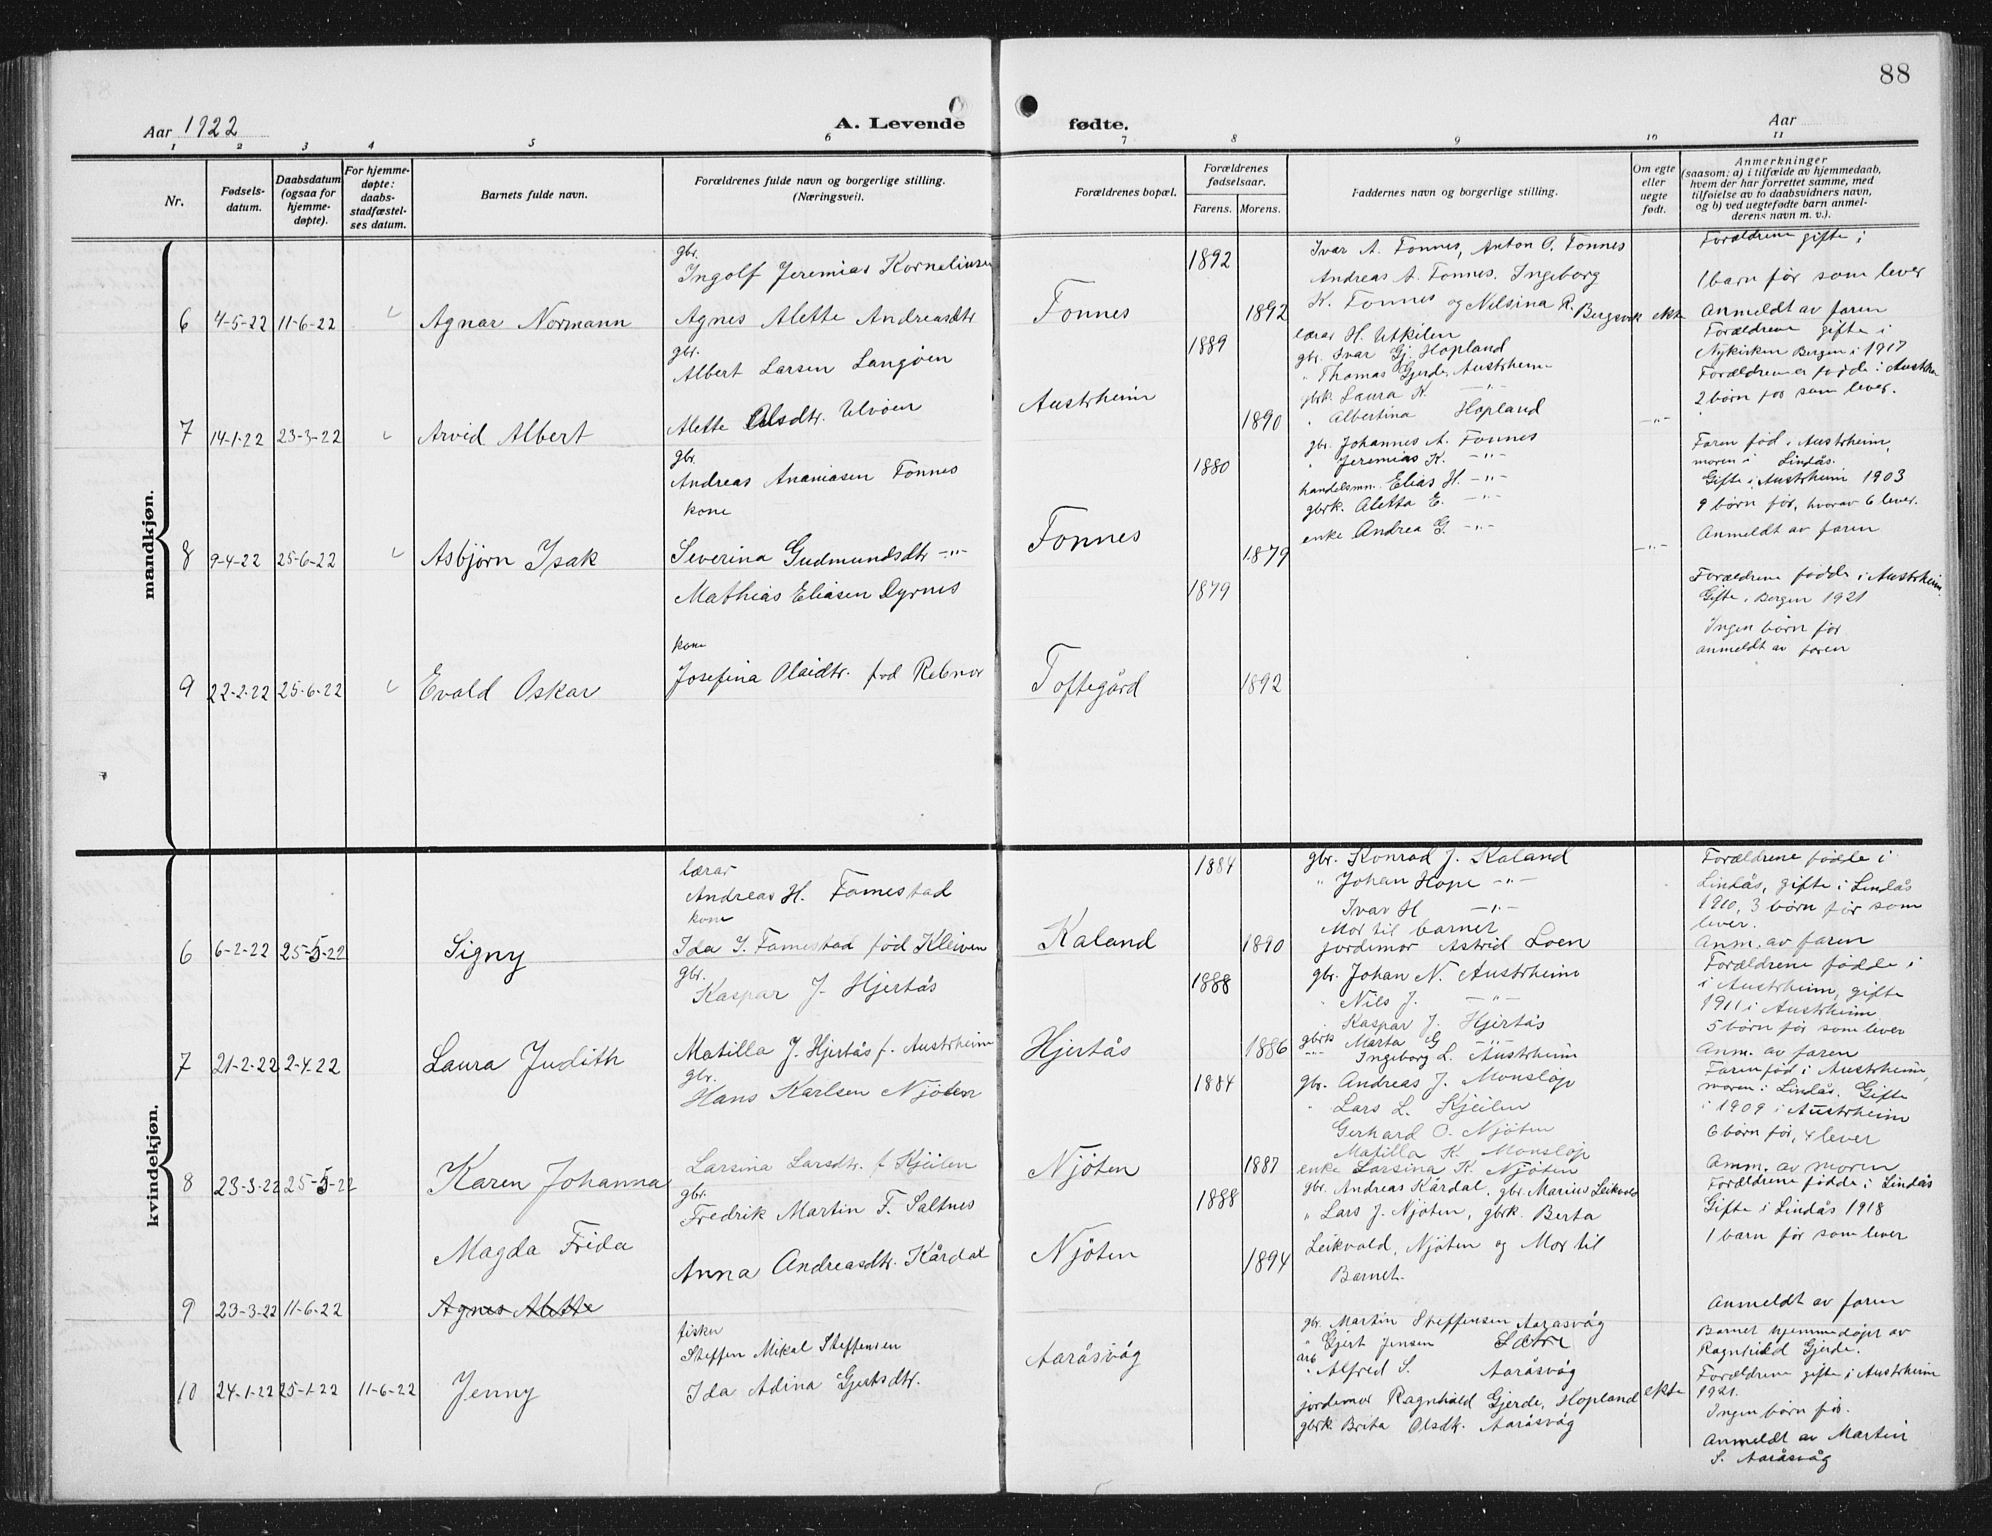 88
Aar 1922
A. Levende fødte.
Aar
1 2 3 4 5 6 7 8 9 10 11
Nr.
Fødsels-
datum.
Daabsdatum
(ogsaa for
hjemme-
døpte).
For hjemme-
døpte:
daabs-
stadfæstel-
ses datum.
Barnets fulde navn.
Forældrenes fulde navn og borgerlige stilling.
(Næringsvei).
Forældrenes bopæl.
Forældrenes
fødselsaar.
Farens. Morens.
Faddernes navn og borgerlige stilling.
Om egte
eller
uegte
født.
Anmerkninger
(saasom: a) i tilfælde av hjemmedaab,
hvem der har forrettet samme, med
tilføielse av to daabsvidners navn,
og b) ved uegtefødte barn anmel-
derens navn m. v.).
mandkjøn.
6 4-5-22 11-6-22 Agnar Normann
gbr.
Ingolf Jeremias Korneliusen
Agnes Alette Andreasdtr
Fonnes
1892
1892
Ivar A. Fonnes, Anton O. Fonnes
Andreas A. Fonnes. Ingeborg
K. Fonnes og Nilsina R. Bergsvik
ekte
Forældrene gifte i
1 barn før som lever
Anmeldt av faren
7 14-1-22 23-3-22 Arvid Albert
gbr.
Albert Larsen Langøen
Alette Olsdtr. Ulvøen
Austrheim
1889
1890
lærar H. Utkilen
gbr. Ivar Gj. Hopland
" Thomas Gjerde, Austrheim
gbrk. Laura K. -"-
" Albertina Hopland
-"-
Forældrene gifte i
Nykirken Bergen i 1917
Forældrene er fødde i Austrhe
2 børn før som lever.
8 9-4-22 25-6-22 Asbjørn Isak
gbr.
Andreas Ananiasen Fonnes
kone
Severina Gudmundsdtr -"-
Fonnes
1880
1879
gbr. Johannes A. Fonnes
" Jeremias K. -"-
handelsmn. Elias H. -"-
gbrk. Aletta E. -"-
enke Andrea G. -"-
-"-
Faren fød i Austrheim,
moren i Lindås.
Gifte i Austrheim 1903
9 børn før, hvorav 6 lever.
Anmeldt av faren
9 22-2-22 25-6-22 Evald Oskar
Mathias Eliasen Dyrnes
kone
Josefina Olaidtr. fød Rebnor
Toftegård
1879
1892
Forældrene fødde i Austrheim.
Gifte i Bergen 1921
Ingen børn før
anmeldt av faren
kvindekjøn.
6 6-2-22 25-5-22 Signy
lærar
Andreas H. Fonnestad
kone
Ida J. Fonnestad fød Kleiven
Kaland
1884
1890
gbr. Konrad J. Kaland
" Johan Hope -"-
Ivar H -"-
Mor til barnet
jordmor Astrid Loen
Forældrene fødde i
Lindås, gifte i Lindås
1910, 3 børn før som
lever.
Anm. av faren
7 21-2-22 2-4-22 Laura Judith
gbr.
Kaspar J. Hjertås
Matilla J. Hjertås f. Austrheim
Hjertås
1888
1886
gbr. Johan N. Austrheim
" Nils J. -"-
Kaspar J. Hjertås
gbrk Marta G -"-
-"- Ingeborg L. Austrheim
Forældrene fødde i
i Austrheim, gifte
1911 i Austrheim
5 børn før som lever
Anm. av faren
8 23-3-22 25-5-22 Karen Johanna
gbr.
Hans Karlsen Njøten
Larsina Larsdtr. f. Kjeilen
Njöten
1884
1887
gbr. Andreas J. Monsløp
" Lars L. Kjeilen
Gerhard O. Njöten
Matilla K. Monsløp
enke Larsina K. Njöten
Faren fød i Austrheim,
moren i Lindås. Gifte
i 1909 i Austrheim
6 børn før, 4 lever
Anm. av moren
9 23-3-22 11-6-22 Magda Frida
Agnes Alette
gbr.
Fredrik Martin F. Saltnes
Anna Andreasdtr. Kårdal
Njöten
1888
1894
gbr. Andreas Kårdal, gbr. Marius Leikvold
" Lars J. Njöten, gbrk. Berta
Leikvold, Njöten og Mor til
Barnet.
Forældrene fødde i Lindås
Gifte i Lindås 1918
1 barn før som lever
Anmeldt av faren
10 24-1-22 25-1-22 11-6-22 Jenny
fisker
Steffen Mikal Steffensen
Ida Adina Gjertsdtr.
Aaråsvåg
gbr. Martin Steffensen Aaråsvåg
" Gjert Jensen Sætre
arb. Alfred S. Aaråsvåg
jordemor Ragnhild Gjerde, Hopland
gbrk. Brita Olsdtr. Aaråsvåg
ekte
Barnet hjemmedøpt av
Ragnhild Gjerde.
Forældrene gifte i Austrheim
1921.
Ingen børn før.
Anmeldt av Martin
S. Aaråsvåg